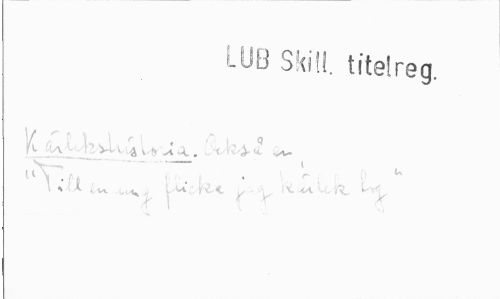 LUB Skill. titelreg.
Kärlekshistoria. Också en
"Till en ung flicka jag kärlek tog"